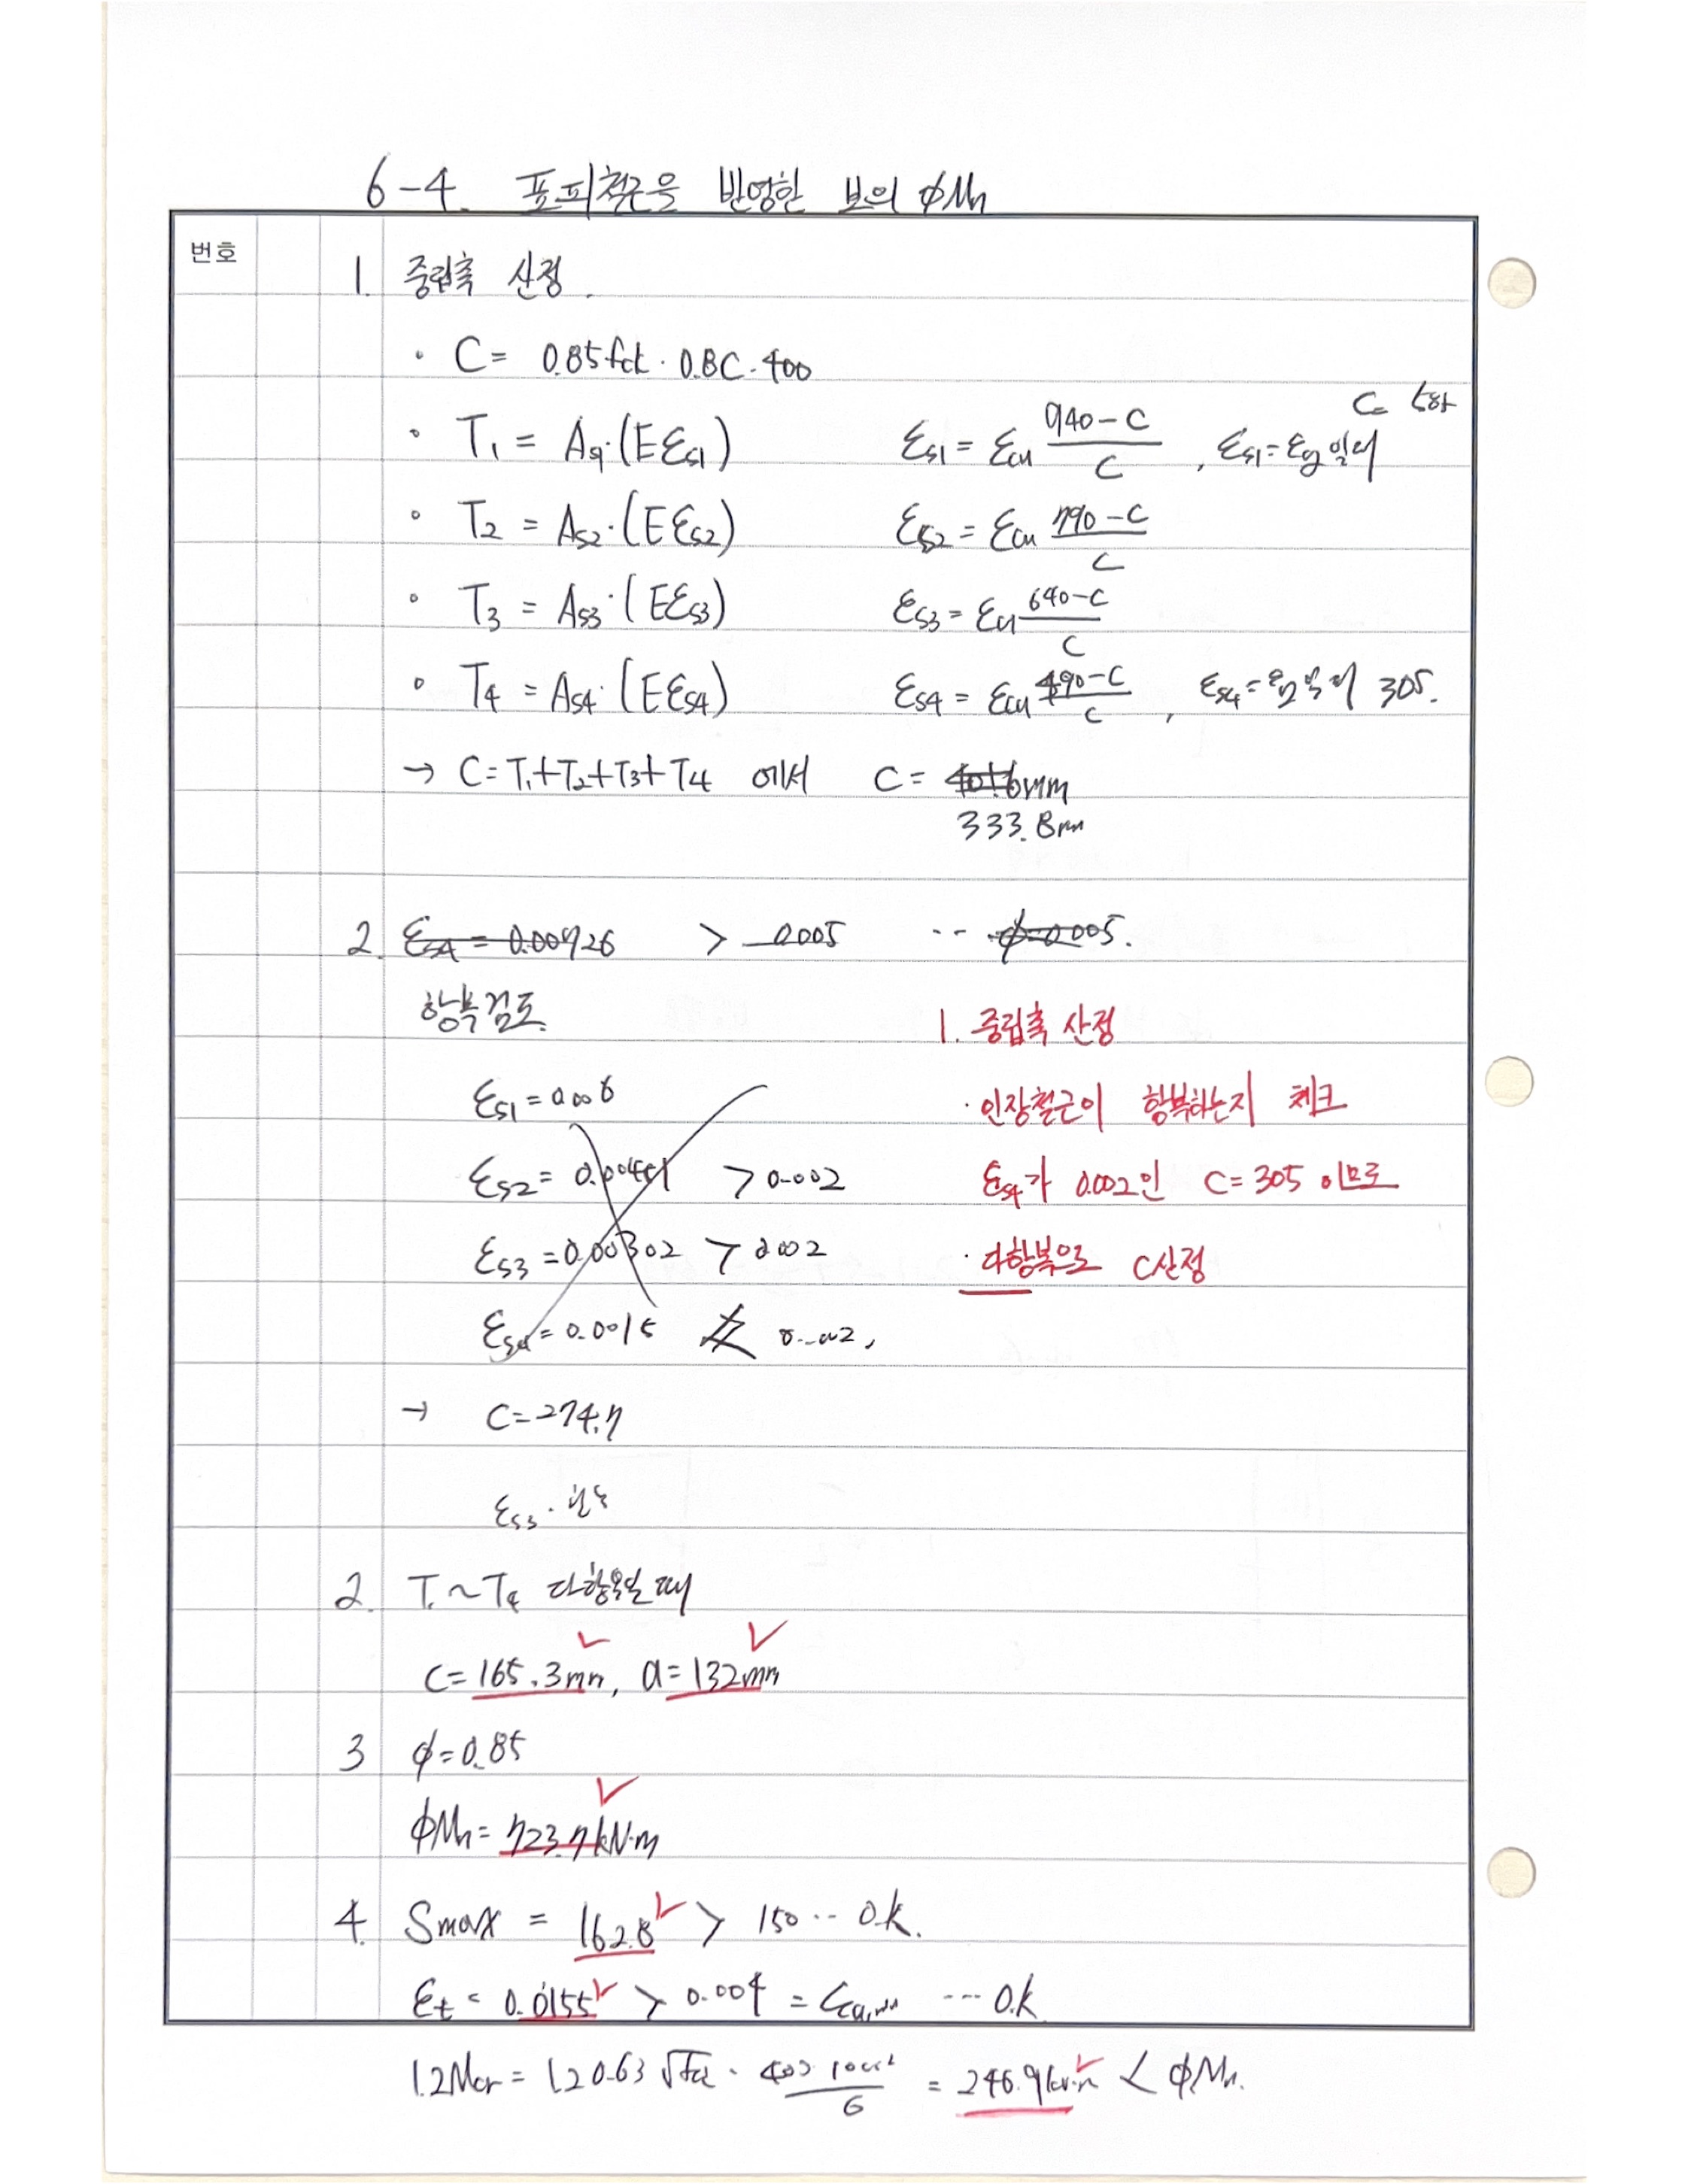 6-4. 표피철근을 반영한 보의 ϕMn
번호
1. 중립축 산정.
· C = 0.85fck · 0.8C · 400
C=
· T1 = As1·(Eεs1) εs1 = εcu (940-C)/C , εs1=εy일때
· T2 = As2·(Eεs2) εs2 = εcu (790-C)/C
· T3 = As3·(Eεs3) εs3 = εcu (640-C)/C
· T4 = As4·(Eεs4) εs4 = εcu (490-C)/C , εs4=εy일때 305.
→ C=T1+T2+T3+T4 에서 C = 401.6mm
333.8mm
2. εs4 = 0.00726 > 0.005 ·· ϕ=0.005.
항복검토.
1. 중립축 산정
εs1=0.006
· 인장철근이 항복하는지 체크
εs2= > 0.002
εs4가 0.002인 C=305 이므로
εs3=0.00302 > 0.002
· 다항복으로 C산정
εs4=0.0015
→ C=274.7
εs3.
2. T1~T4 다항복일 때
C=165.3mm, a=132mm
3 ϕ=0.85
ϕMn= 723.7kN·m
4. Smax = 162.8 > 150 ·· O.K.
εt = 0.0155 > 0.004 = ··· O.K
1.2Mcr = 1.2 0.63 √fck · 400 1000²/6 = 246.9kN·m < ϕMn.